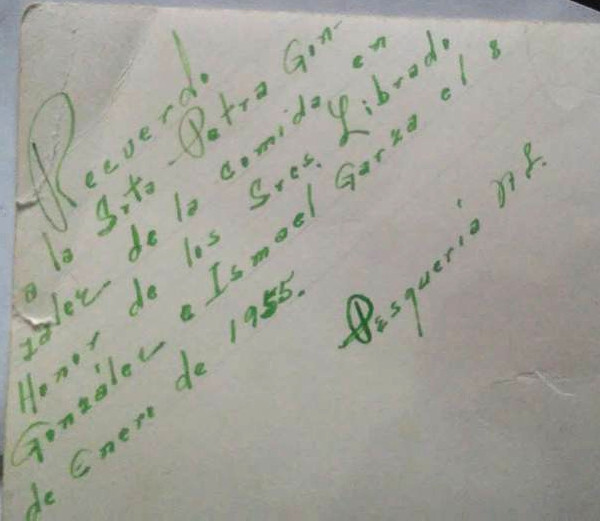 Recuerdo
a la Srta Petra Gon-
zalez. de la comida en
Honor de los Sres. Librado
González e Ismael Garza el 8
de Enero de 1955.
Pesquería N.L.